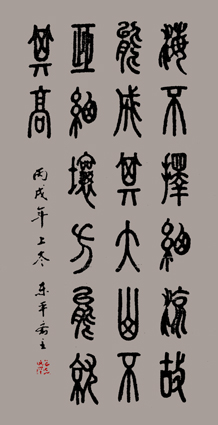 海不擇細流故
能成其大山不
拒細壤方能就
其高
丙戌年上冬 东平斋主